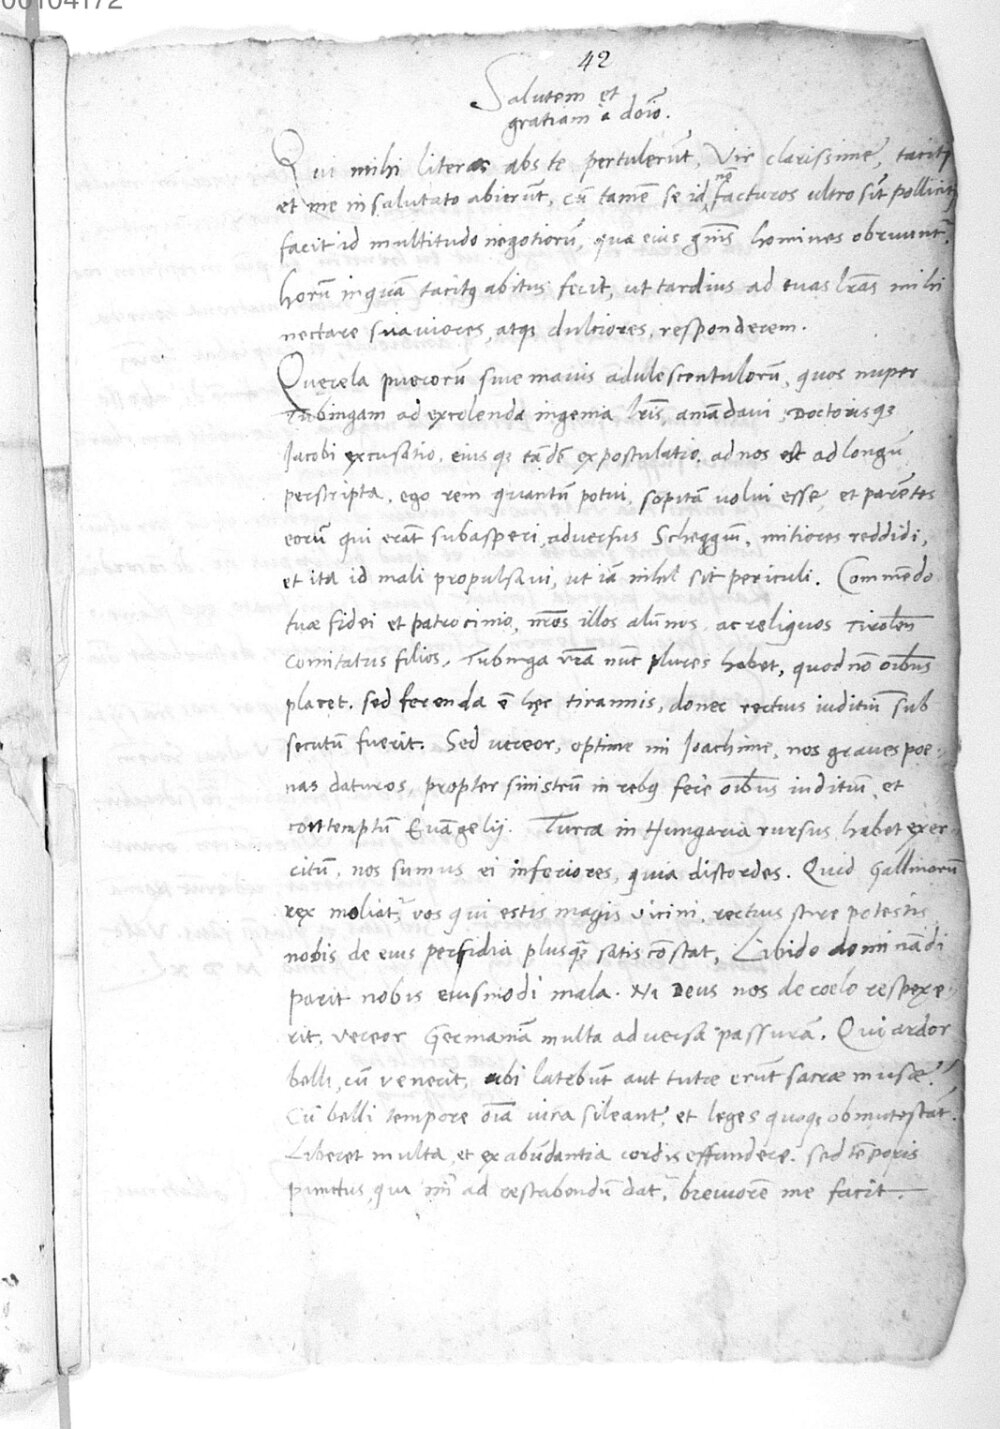 00104172
42
Salutem et
gratiam a dnīo.
Qui mihi literas abs te pertulerūt, Vir clarissime, taciti
et me insalutato abierūt, cū tamē se id nō facturos ultro sīt pollicitj
facit id multitudo negotiorū, quæ eius gn̄is homines obruunt̄.
horū inquā tacitꝰ abitus fecit, ut tardius ad tuas lr̄as mihi
nectare suauiores, atq; dulciores, responderem.
Querela puerorū siue mauis adulescentulorū, quos nuper
Tubingam ad excolenda ingenia lr̄is, amādaui, Doctorisq;
Jacobi excusatio, eiusq; tādē expostulatio, ad nos est ad longū
perscripta, ego rem quantū potui, sopitā uolui esse, et parētes
eorū qui erāt subasperi, aduersus Scheggiū, mitiores reddidi,
et ita id mali propulsaui, ut iā nihil sit periculi. Commēdo
tuæ fidei et patrocinio, nr̄os illos alūnos, ac reliquos Tirolēn
Comitatus filios, Tubinga vr̄a nūc plures habet, quod nō oībus
placet, sed ferenda ē hęc tirannis, donec rectius iuditiū sub
secutū fuerit. Sed uereor, optime mi Joachime, nos graues poe-
nas daturos, propter sinistrū in rebꝰ fere oībus iuditiū, et
contemptū Euāgelij. Turca in Hungaria rursus habet exer-
citū, nos sumus ei inferiores, quia discordes. Quid Gallinarū
rex moliat̄, vos qui estis magis vicini, rectius scire potestis
nobis de eius perfidia plusq̄ satis cōstat, Libido dominādi
parit nobis eiusmodi mala. Ni Deus nos de coelo respexe-
rit, vereor Germaniā multa aduersa passurā. Qui ardor
belli, cū venerit, ubi latebūt aut tutæ erūt sacræ musæ?
Cū belli tempore oīa iura sileant, et leges quoq; obmutescāt.
Liberet multa, et ex abūdantia cordis effundere. sed tēporis
punctus, qui mī ad rescribendū dat̄, breuiorē me facit.